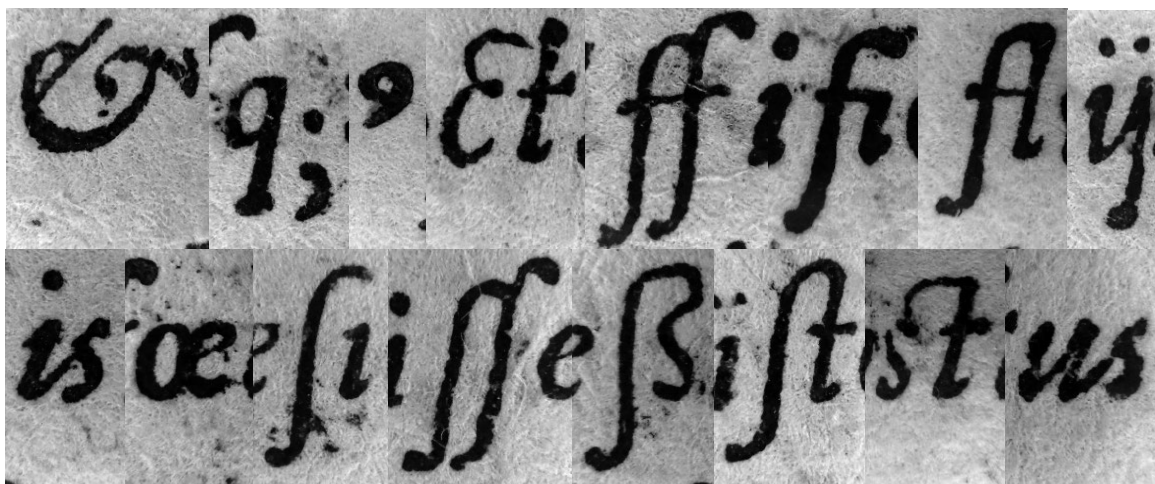 & q; ꝰ Et ff i fi fl ij
is œ ſi i ſſ e ß ſt st us